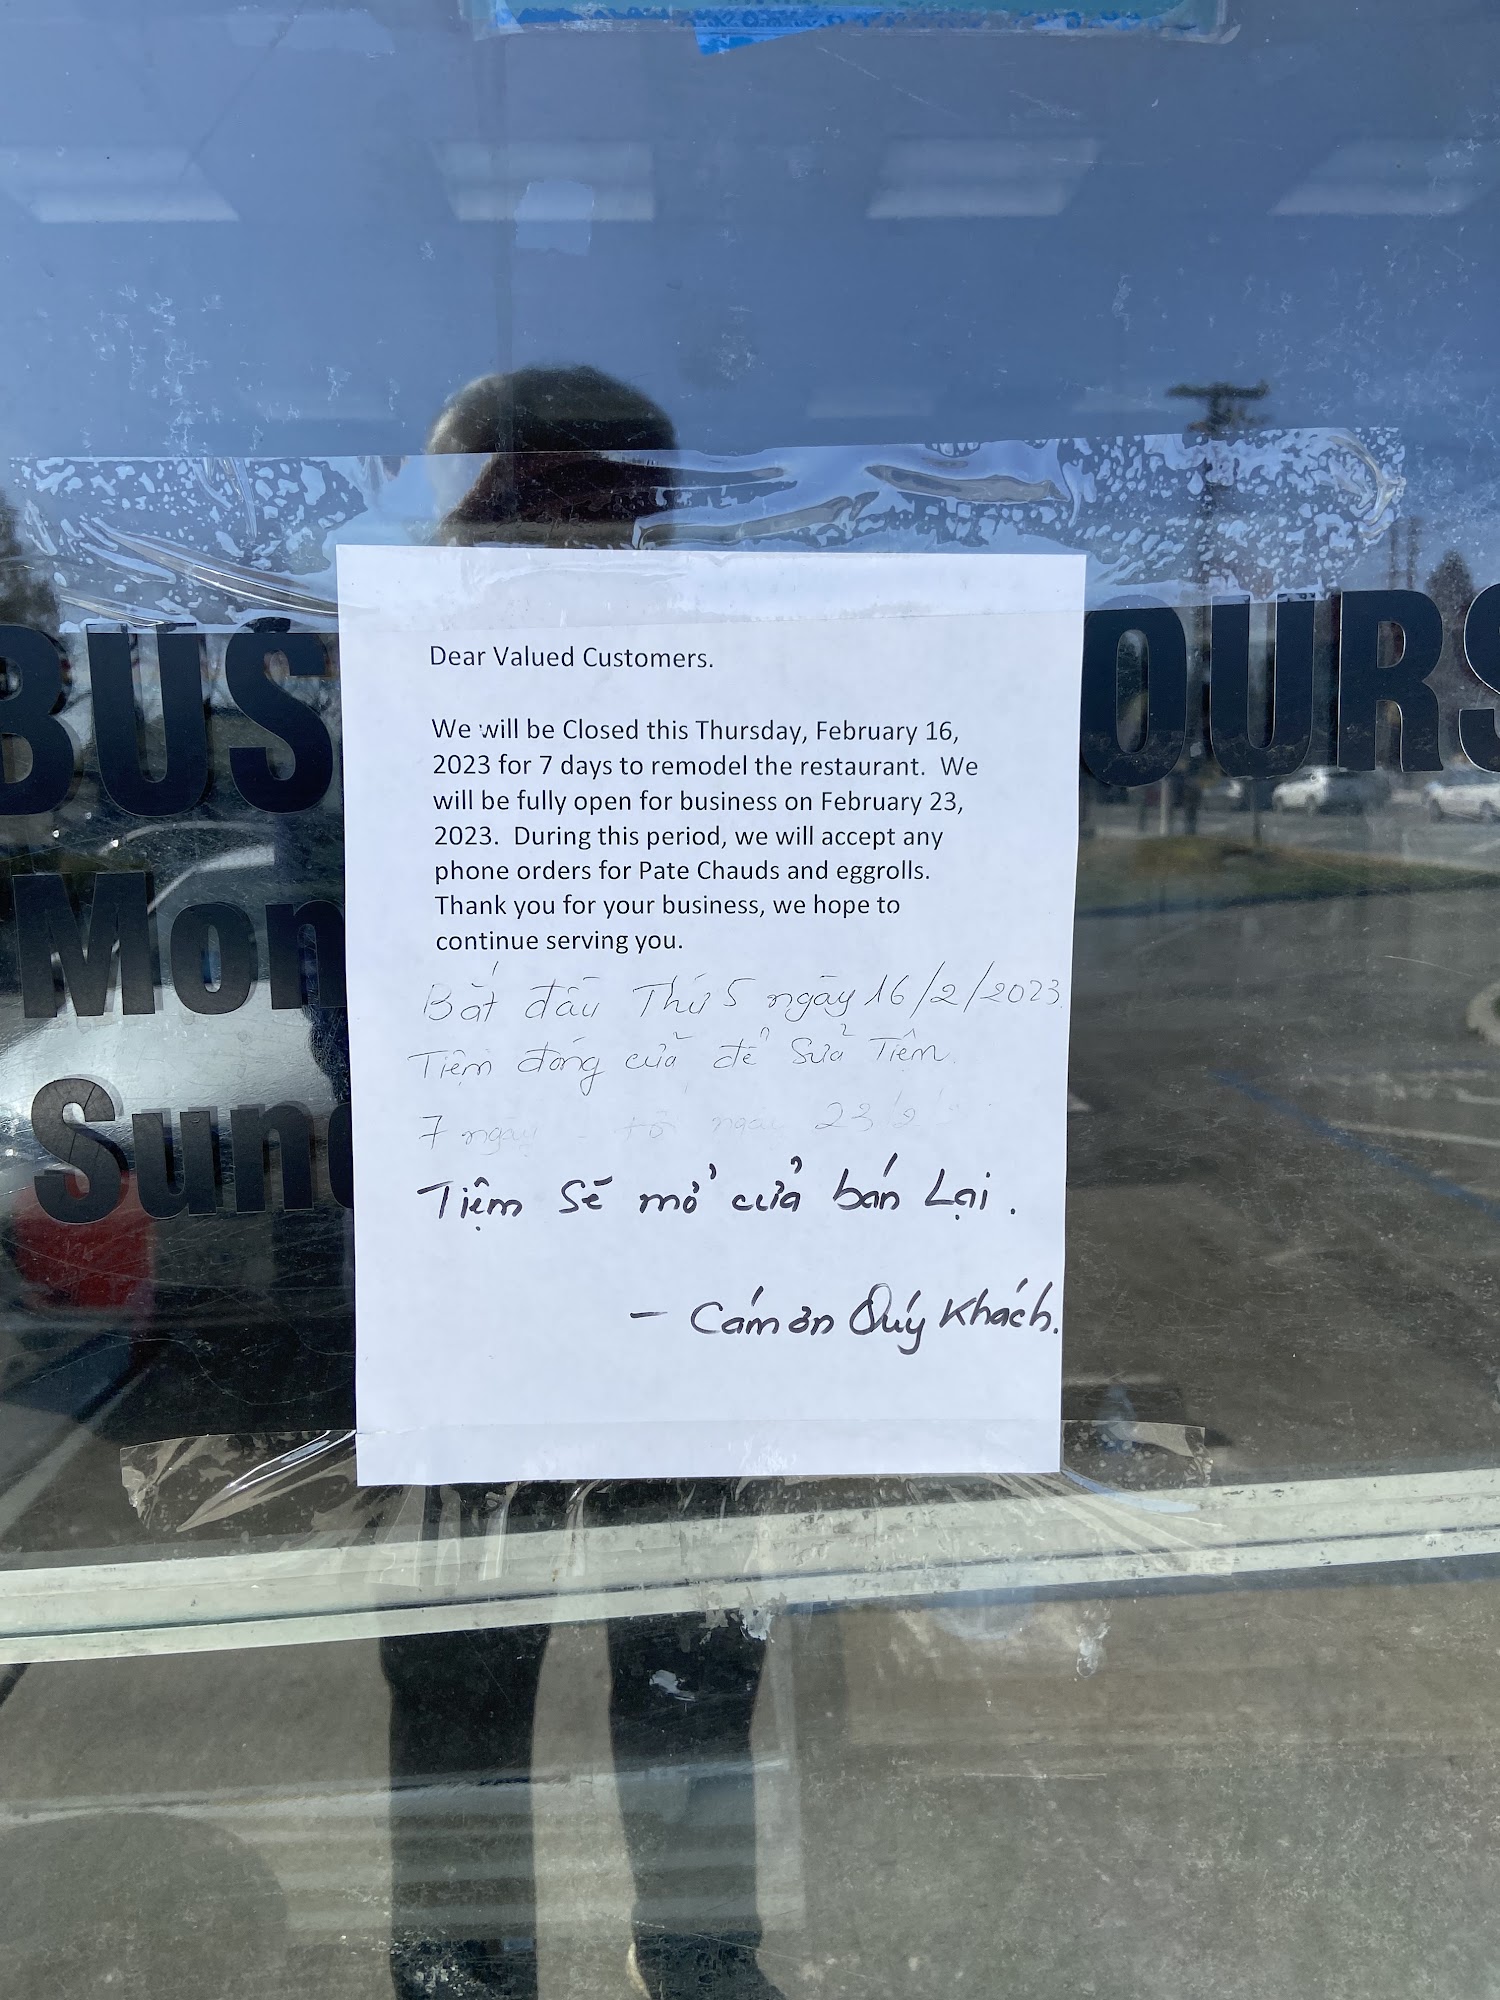 BUS OURS
Mon
Sun
Dear Valued Customers.
We will be Closed this Thursday, February 16,
2023 for 7 days to remodel the restaurant.  We
will be fully open for business on February 23,
2023.  During this period, we will accept any
phone orders for Pate Chauds and eggrolls.
Thank you for your business, we hope to
continue serving you.
Bắt đầu Thứ 5 ngày 16/2/2023.
Tiệm đóng cửa để Sửa Tiệm.
7 ngày - tới ngày 23/2/
Tiệm Sẽ mở cửa bán Lại.
- Cám ơn Quý Khách.